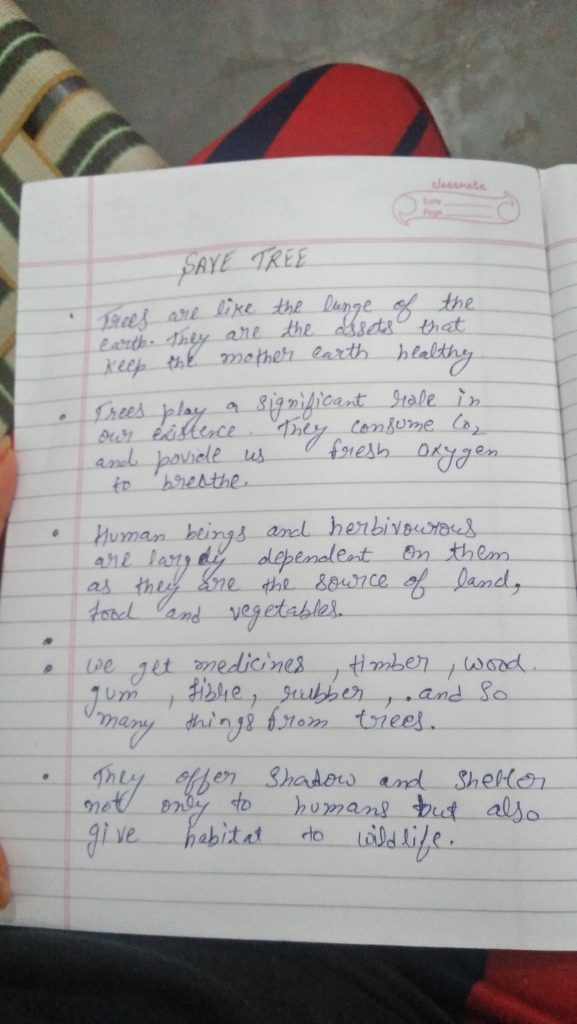 classmate
Date
Page
SAVE TREE
• Trees are like the lungs of the
earth. They are the assets that
keep the mother earth healthy.
• Trees play a significant role in
our existence. They consume Co2
and povide us fresh oxygen
to breathe.
• Human beings and herbivourous
are largely dependent on them
as they are the source of land,
food and vegetables.
•
• We get medicines, timber, wood.
gum, fibre, rubber, . and so
many things from trees.
• They offer shadow and shelter
not only to humans but also
give habitat to wildlife.